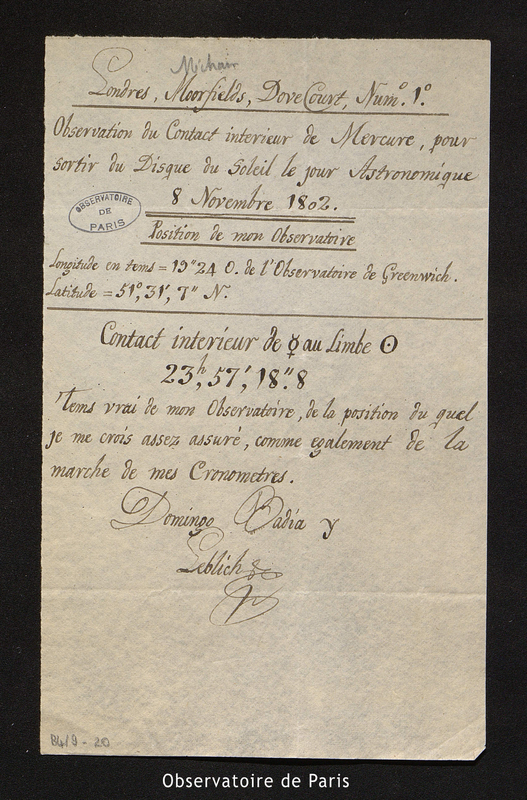 Méchain
Londres, Moorfields, Dove Court, Num.º 1.º
Observation du Contact interieur de Mercure, pour
sortir du Disque du Soleil le jour Astronomique
8 Novembre 1802.
OBSERVATOIRE
DE
PARIS
Position de mon Observatoire
Longitude en tems = 19" 24 O. de l'Observatoire de Greenwich.
Latitude = 51º, 31', 7" N.
Contact interieur de ☿ au Limbe ⊙
23h, 57', 18". 8
Tems vrai de mon Observatoire, de la position du quel
je me crois assez assuré, comme egalement de la
marche de mes Cronometres.
Domingo Badia y
Leblich
B4/9 - 20
Observatoire de Paris